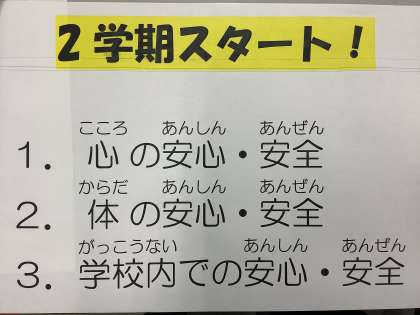 2学期スタート！
こころ あんしん あんぜん
1．心の安心・安全
からだ あんしん あんぜん
2．体の安心・安全
がっこうない あんしん あんぜん
3．学校内での安心・安全